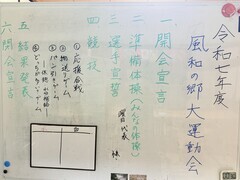 令和七年度
風和の郷大運動会
一、開会宣言
二、準備体操(みんなの体操)
三、選手宣誓
代表 様
四、競技
①応援合戦
②輪送りゲーム
③パン引きゲーム
五、結果発表
六、閉会宣言